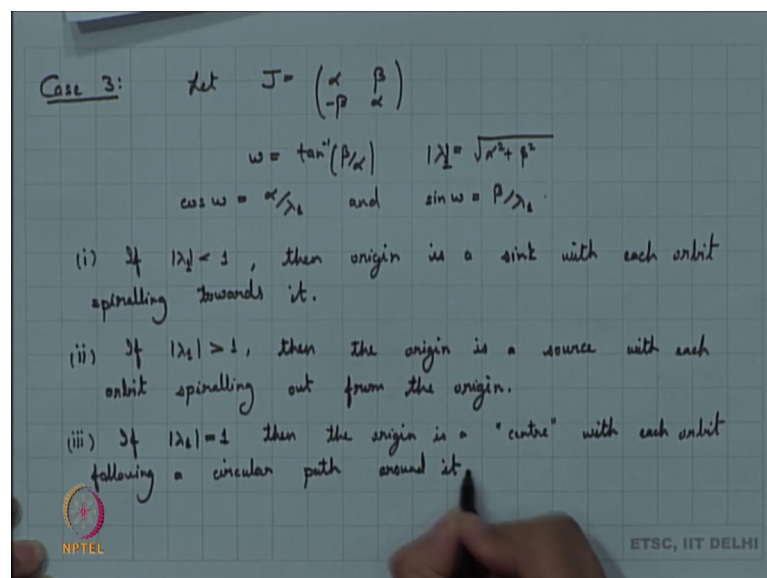 Case 3: Let J = ( α β
-β α )
w = tan⁻¹(β/α) |λ₁| = √α² + β²
cos w = α/λ₁ and sin w = β/λ₁.
(i) If |λ₁| < 1, then origin is a sink with each orbit
spiralling towards it.
(ii) If |λ₁| > 1, then the origin is a source with each
orbit spiralling out from the origin.
(iii) If |λ₁| = 1 then the origin is a "centre" with each orbit
following a circular path around it
NPTEL
ETSC, IIT DELHI